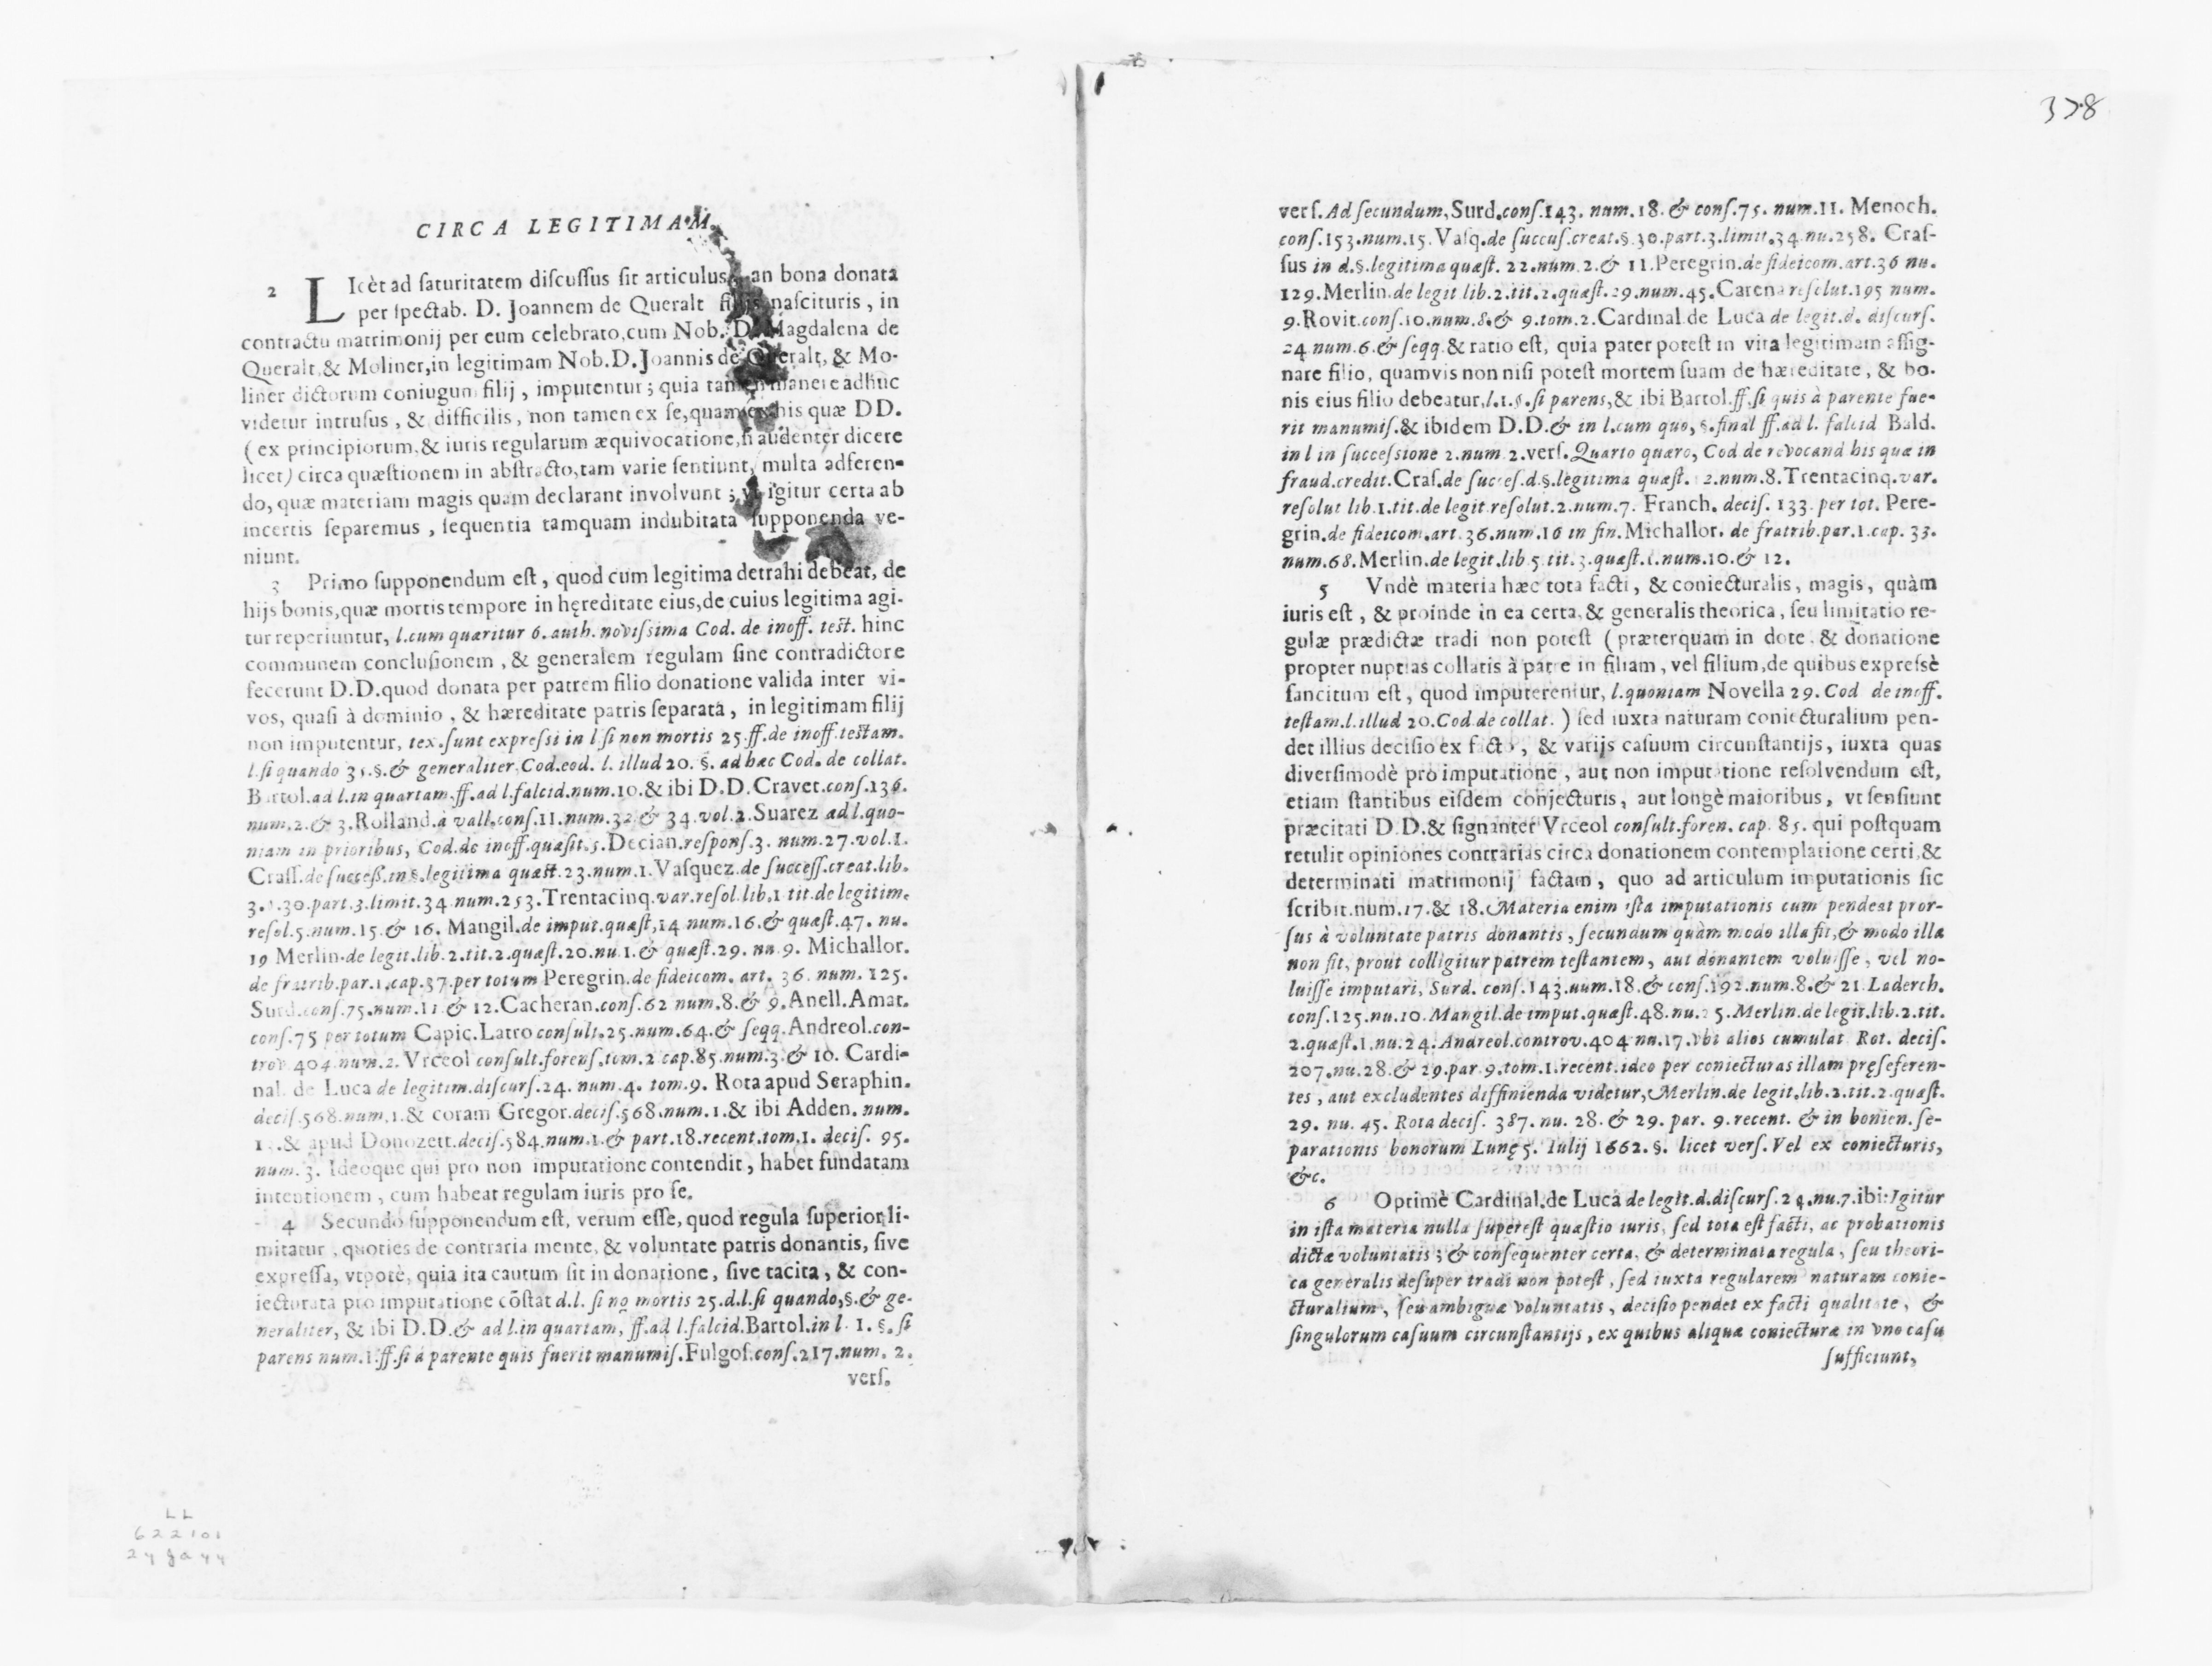 CIRCA LEGITIMAM.
2 LIcèt ad saturitatem discussus sit articulus, an bona donata
per spectab. D. Joannem de Queralt filijs nascituris, in
contractu matrimonij per eum celebrato, cum Nob. D. Magdalena de
Queralt, & Moliner, in legitimam Nob. D. Joannis de Queralt, & Mo-
liner dictorum coniugum filij, imputentur; quia tamen manere adhuc
videtur intrusus, & difficilis, non tamen ex se, quam ex his quæ DD.
(ex principiorum, & iuris regularum æquivocatione, si audenter dicere
licet) circa quæstionem in abstracto, tam varie sentiunt, multa adferen-
do, quæ materiam magis quam declarant involvunt; vt igitur certa ab
incertis separemus, sequentia tamquam indubitata supponenda ve-
niunt.
3 Primo supponendum est, quod cum legitima detrahi debeat, de
hijs bonis, quæ mortis tempore in hęreditate eius, de cuius legitima agi-
tur reperiuntur, l. cum quæritur 6. auth. novissima Cod. de inoff. test. hinc
communem conclusionem, & generalem regulam sine contradictore
fecerunt D.D. quod donata per patrem filio donatione valida inter vi-
vos, quasi à dominio, & hæreditate patris separata, in legitimam filij
non imputentur, tex. sunt expressi in l. si non mortis 25. ff. de inoff. testam.
l. si quando 35. §. & generaliter, Cod. eod. l. illud 20. §. ad hæc Cod. de collat.
Bartol. ad l. in quartam. ff. ad l. falcid. num. 10. & ibi D.D. Cravet. cons. 136.
num. 2. & 3. Rolland. à vall. cons. 11. num. 32. & 34. vol. 2. Suarez ad l. quo-
niam in prioribus, Cod. de inoff. quæsit. 5. Decian. respons. 3. num. 27. vol. 1.
Crass. de success. in §. legitima quæst. 23. num. 1. Vasquez. de success. creat. lib.
3. §. 30. part. 3. limit. 34. num. 253. Trentacinq. var. resol. lib. 1 tit. de legitim.
resol. 5. num. 15. & 16. Mangil. de imput. quæst, 14. num. 16. & quæst. 47. nu.
19 Merlin. de legit. lib. 2. tit. 2. quæst. 20. nu 1. & quæst. 29. nu. 9. Michallor.
de fratrib. par. 1. cap. 37. per totum Peregrin. de fideicom. art. 36. num. 125.
Surd. cons. 75. num. 11. & 12. Cacheran. cons. 62 num. 8. & 9. Anell. Amat.
cons. 75 per totum Capic. Latro consult. 25. num. 64. & seqq. Andreol. con-
trov. 404. num. 2. Vrceol consult. forens. tom. 2 cap. 85. num. 3. & 10. Cardi-
nal. de Luca de legitim. discurs. 24. num. 4. tom. 9. Rota apud Seraphin.
decis. 568. num. 1. & coram Gregor. decis. 568. num. 1. & ibi Adden. num.
& apud Donozett. decis. 584. num. 1. & part. 18. recent. tom. 1. decis. 95.
num. 3. Ideoque qui pro non imputatione contendit, habet fundatam
intentionem, cum habeat regulam iuris pro se.
4 Secundo supponendum est, verum esse, quod regula superior, li-
mitatur, quoties de contraria mente, & voluntate patris donantis, sive
expressa, vtpotè, quia ita cautum sit in donatione, sive tacita, & con-
iecturata pro imputatione cõstat d. l. si nõ mortis 25. d. l. si quando, §. & ge-
neraliter, & ibi D.D. & ad l. in quartam, ff. ad l. falcid. Bartol. in l. 1. §. si
parens num. 1. ff. si à parente quis fuerit manumis. Fulgos. cons. 217. num. 2.
vers.
378
vers. Ad secundum, Surd. cons. 143. num. 18. & cons. 75. num. 11. Menoch.
cons. 153. num. 15. Vasq. de succus. creat. §. 30. part. 3. limit. 34. nu. 258. Cras-
sus in d. §. legitima quæst. 22. num. 2. & 11. Peregrin. de fideicom. art. 36 nu.
129. Merlin. de legit lib. 2. tit. 2. quæst. 29. num. 45. Carena resolut. 195 num.
9. Rovit. cons. 10. num. 8. & 9. tom. 2. Cardinal. de Luca de legit. d. discurs.
24 num. 6. & seqq. & ratio est, quia pater potest in vita legitimam assig-
nare filio, quamvis non nisi potest mortem suam de hæreditate, & bo-
nis eius filio debeatur, l. 1. §. si parens, & ibi Bartol. ff. si quis à parente fue-
rit manumis. & ibidem D.D. & in l. cum quo, §. final ff. ad l. falcid Bald.
in l in successione 2. num 2. vers. Quarto quæro, Cod de revocand his quæ in
fraud. credit. Cras. de succes. d. §. legitima quæst. 2. num. 8. Trentacinq. var.
resolut lib. 1. tit. de legit. resolut. 2. num. 7. Franch. decis. 133. per tot. Pere-
grin. de fideicom. art. 36. num. 16 in fin. Michallor. de fratrib. par. 1. cap. 33.
num. 68. Merlin. de legit. lib 5. tit. 3. quæst. 1. num. 10. & 12.
5 Vndè materia hæc tota facti, & coniecturalis, magis, quàm
iuris est, & proinde in ea certa, & generalis theorica, seu limitatio re-
gulæ prædictæ tradi non potest (præterquam in dote, & donatione
propter nuptias collatis à patre in filiam, vel filium, de quibus expressè
sancitum est, quod imputerentur, l. quoniam Novella 29. Cod de inoff.
testam. l. illud 20. Cod. de collat.) sed iuxta naturam coniecturalium pen-
det illius decisio ex facto, & varijs casuum circunstantijs, iuxta quas
diversimodè pro imputatione, aut non imputatione resolvendum est,
etiam stantibus eisdem conjecturis, aut longè maioribus, vt sensiunt
præcitati D.D. & signanter Vrceol consult. foren. cap. 85. qui postquam
retulit opiniones contrarias circa donationem contemplatione certi, &
determinati matrimonij factam, quo ad articulum imputationis sic
scribit. num. 17. & 18. Materia enim ista imputationis cum pendeat pror-
sus à voluntate patris donantis, secundum quàm modo illa fit, & modo illa
non fit, prout colligitur patrem testantem, aut donantem voluisse, vel no-
luisse imputari, Surd. cons. 143. num. 18. & cons. 192. num. 8. & 21. Laderch.
cons. 125. nu. 10. Mangil. de imput. quæst. 48. nu. 5. Merlin. de legit. lib. 2. tit.
2. quæst. 1. nu. 24. Andreol. controv. 404 nu. 17. vbi alios cumulat Rot. decis.
207. nu. 28. & 29. par. 9. tom. 1. recent. ideo per coniecturas illam pręseferen-
tes, aut excludentes diffinienda videtur, Merlin. de legit. lib. 2. tit. 2. quæst.
29. nu. 45. Rota decis. 387. nu. 28. & 29. par. 9. recent. & in bonien. se-
parationis bonorum Lunę 5. Iulij 1662. §. licet vers. Vel ex coniecturis,
&c.
6 Optimè Cardinal. de Luca de legit. d. discurs. 24. nu. 7. ibi: Igitur
in ista materia nulla superest quæstio iuris, sed tota est facti, ac probationis
dictæ voluntatis; & consequenter certa, & determinata regula, seu theori-
ca generalis desuper tradi non potest, sed iuxta regularem naturam conie-
cturalium, seu ambiguæ voluntatis, decisio pendet ex facti qualitate, &
singulorum casuum circunstantijs, ex quibus aliquæ coniecturæ in vno casu
sufficiunt,
LL
622101